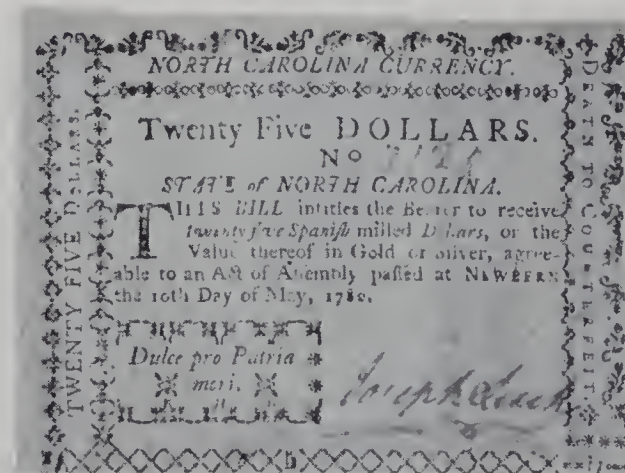 NORTH CAROLINA CURRENCY.
Twenty Five DOLLARS.
No
STATE of NORTH CAROLINA.
THIS BILL intitles the Bearer to receive
twenty five Spaniſh milled Dollars, or the
Value thereof in Gold or Silver, agree-
able to an Act of Aſſembly paſſed at NEWBERN
the 10th Day of May, 1780.
Dulce pro Patria
mori.
TWENTY FIVE DOLLARS.
DEATH TO COUNTERFEIT.